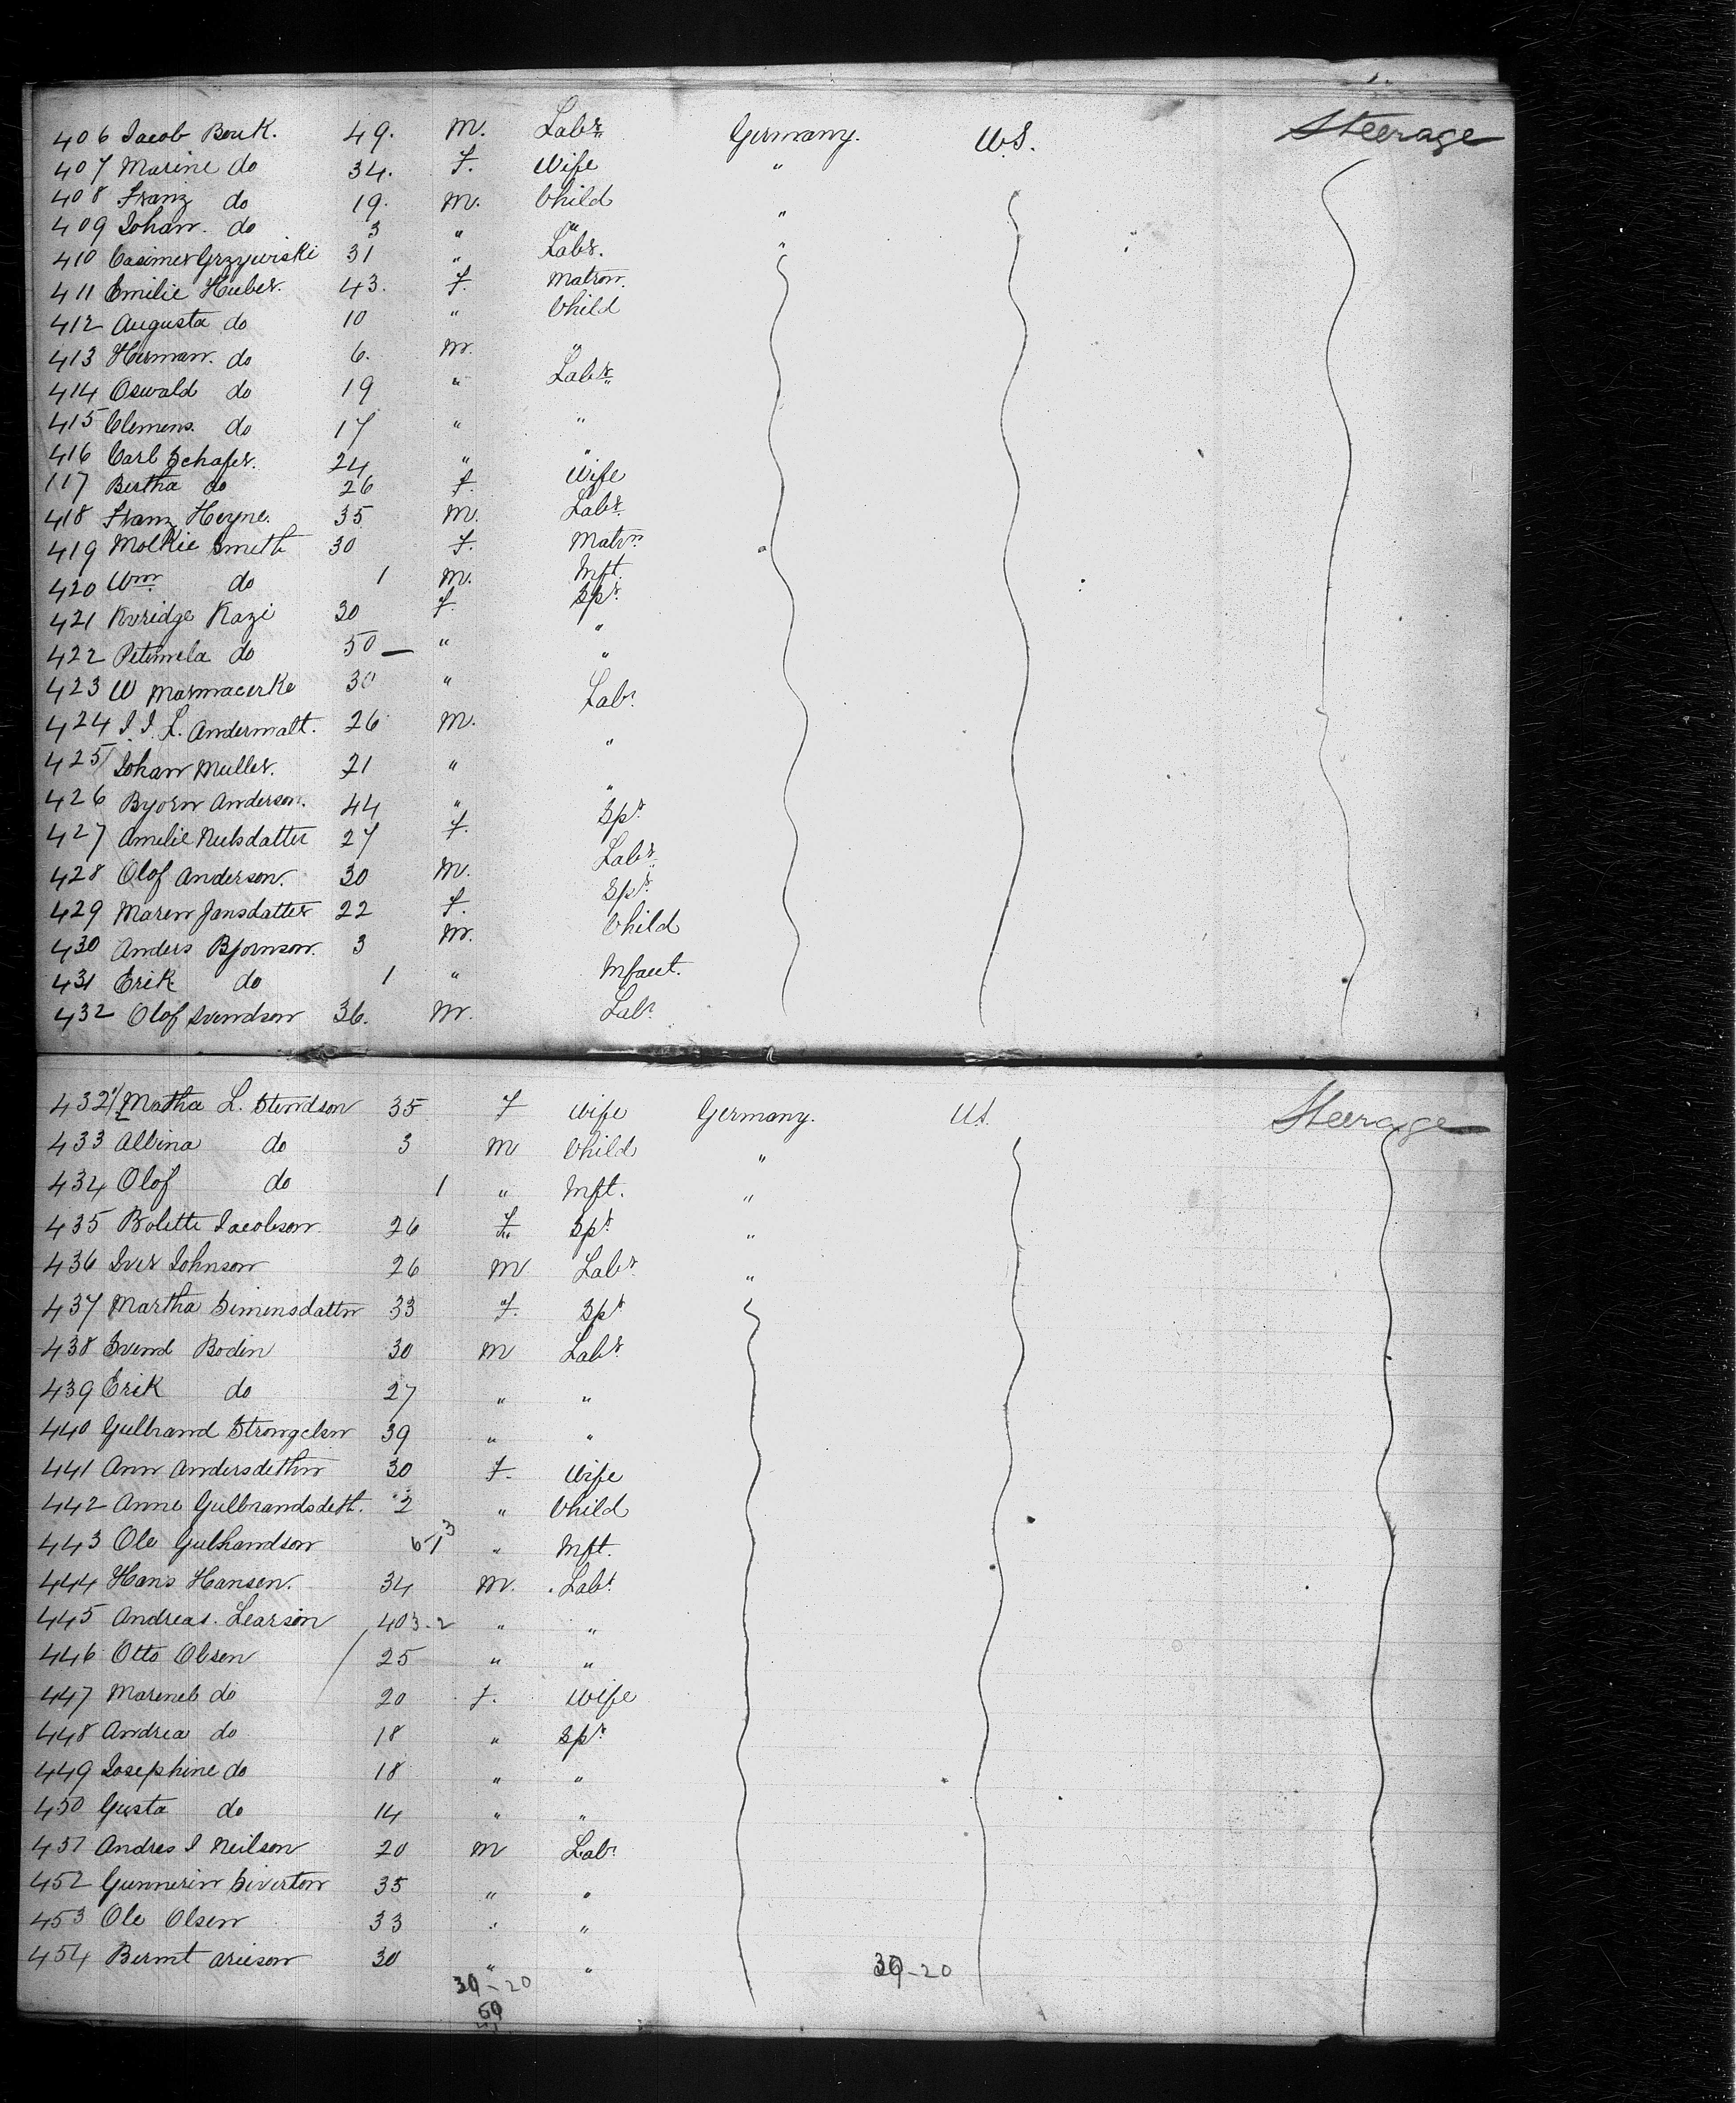 406 Jacob Bouk. 49. M. Labr Germany. U.S. Steerage
407 Marine do 34. F. Wife "
408 Franz do 19. M. Child "
409 Johan. do 3 " " "
410 Casimer Grzywiski 31 " Labr.
411 Emilie Huber. 43. F. Matron.
412 Augusta do 10 " Child
413 Herman. do 6. M. "
414 Oswald do 19 " Labr
415 Clemens. do 17 " "
416 Carl Schafer. 24 " "
117 Bertha do 26 F. Wife
418 Franz Heyne. 35 M. Labr.
419 Molkie Smith 30 F. Matrn
420 Wm do 1 M. Inft.
421 Kvridge Kazi 30 F. Spr.
422 Petimela do 50 — " "
423 W Marmacerke 30 " "
424 J. J. L. Andermatt. 26 M. Labr
425 Johan Muller. 21 " "
426 Byorn Anderson. 44 " "
427 Amelie Neilsdatter 27 F. Spr
428 Olof Anderson. 30 M. Labr
429 Maren Jansdatter 22 F. Spr
430 Anders Bjornson. 3 M. Child
431 Erik do 1 " Infant.
432 Olof Svendson 36. M. Labr
432 1/2 Matha L. Svendson 35 F Wife Germany. U.S. Steerage
433 Albina do 3 M Child "
434 Olof do 1 " Inft. "
435 Bolette Jacobson 26 F. Spr "
436 Iver Johnson 26 M Labr "
437 Martha Simensdattr 33 F. Spr
438 Svend Bodin 30 M Labr
439 Erik do 27 " "
440 Gulbrand Strongelsn 39 " "
441 Ann Andersdettn 30 F. Wife
442 Anne Gulbrandsdett. 2 " Child
443 Ole Gulbrandson " Inft.
444 Hans Hansen. 34 M. Labr
445 Andreas. Learson 403-2 " "
446 Otto Olsen 25 " "
447 Mareneb do 20 F. Wife
448 Andrea do 18 " Spr
449 Josephine do 18 " "
450 Gusta do 14 " "
451 Andres J Neilson 20 M Labr
452 Gunnerin Sivertom 35 " "
453 Ole Olsen 33 " "
454 Bernt Arieson 30 " "
39-20 39-20